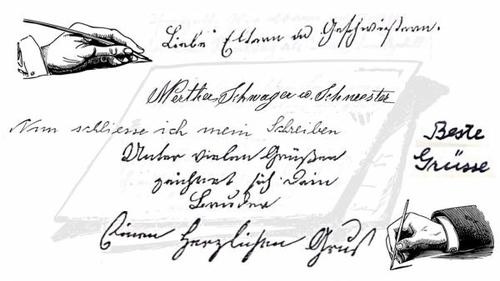 Liebe Eltern und Geschwistern.
Werther Schwager u. Schwester
Nun schliesse ich mein Schreiben
Beste
Grüsse
Unter vielen Grüßen
zeichnet sich Dein
Bruder
Einen Herzlichen Gruß